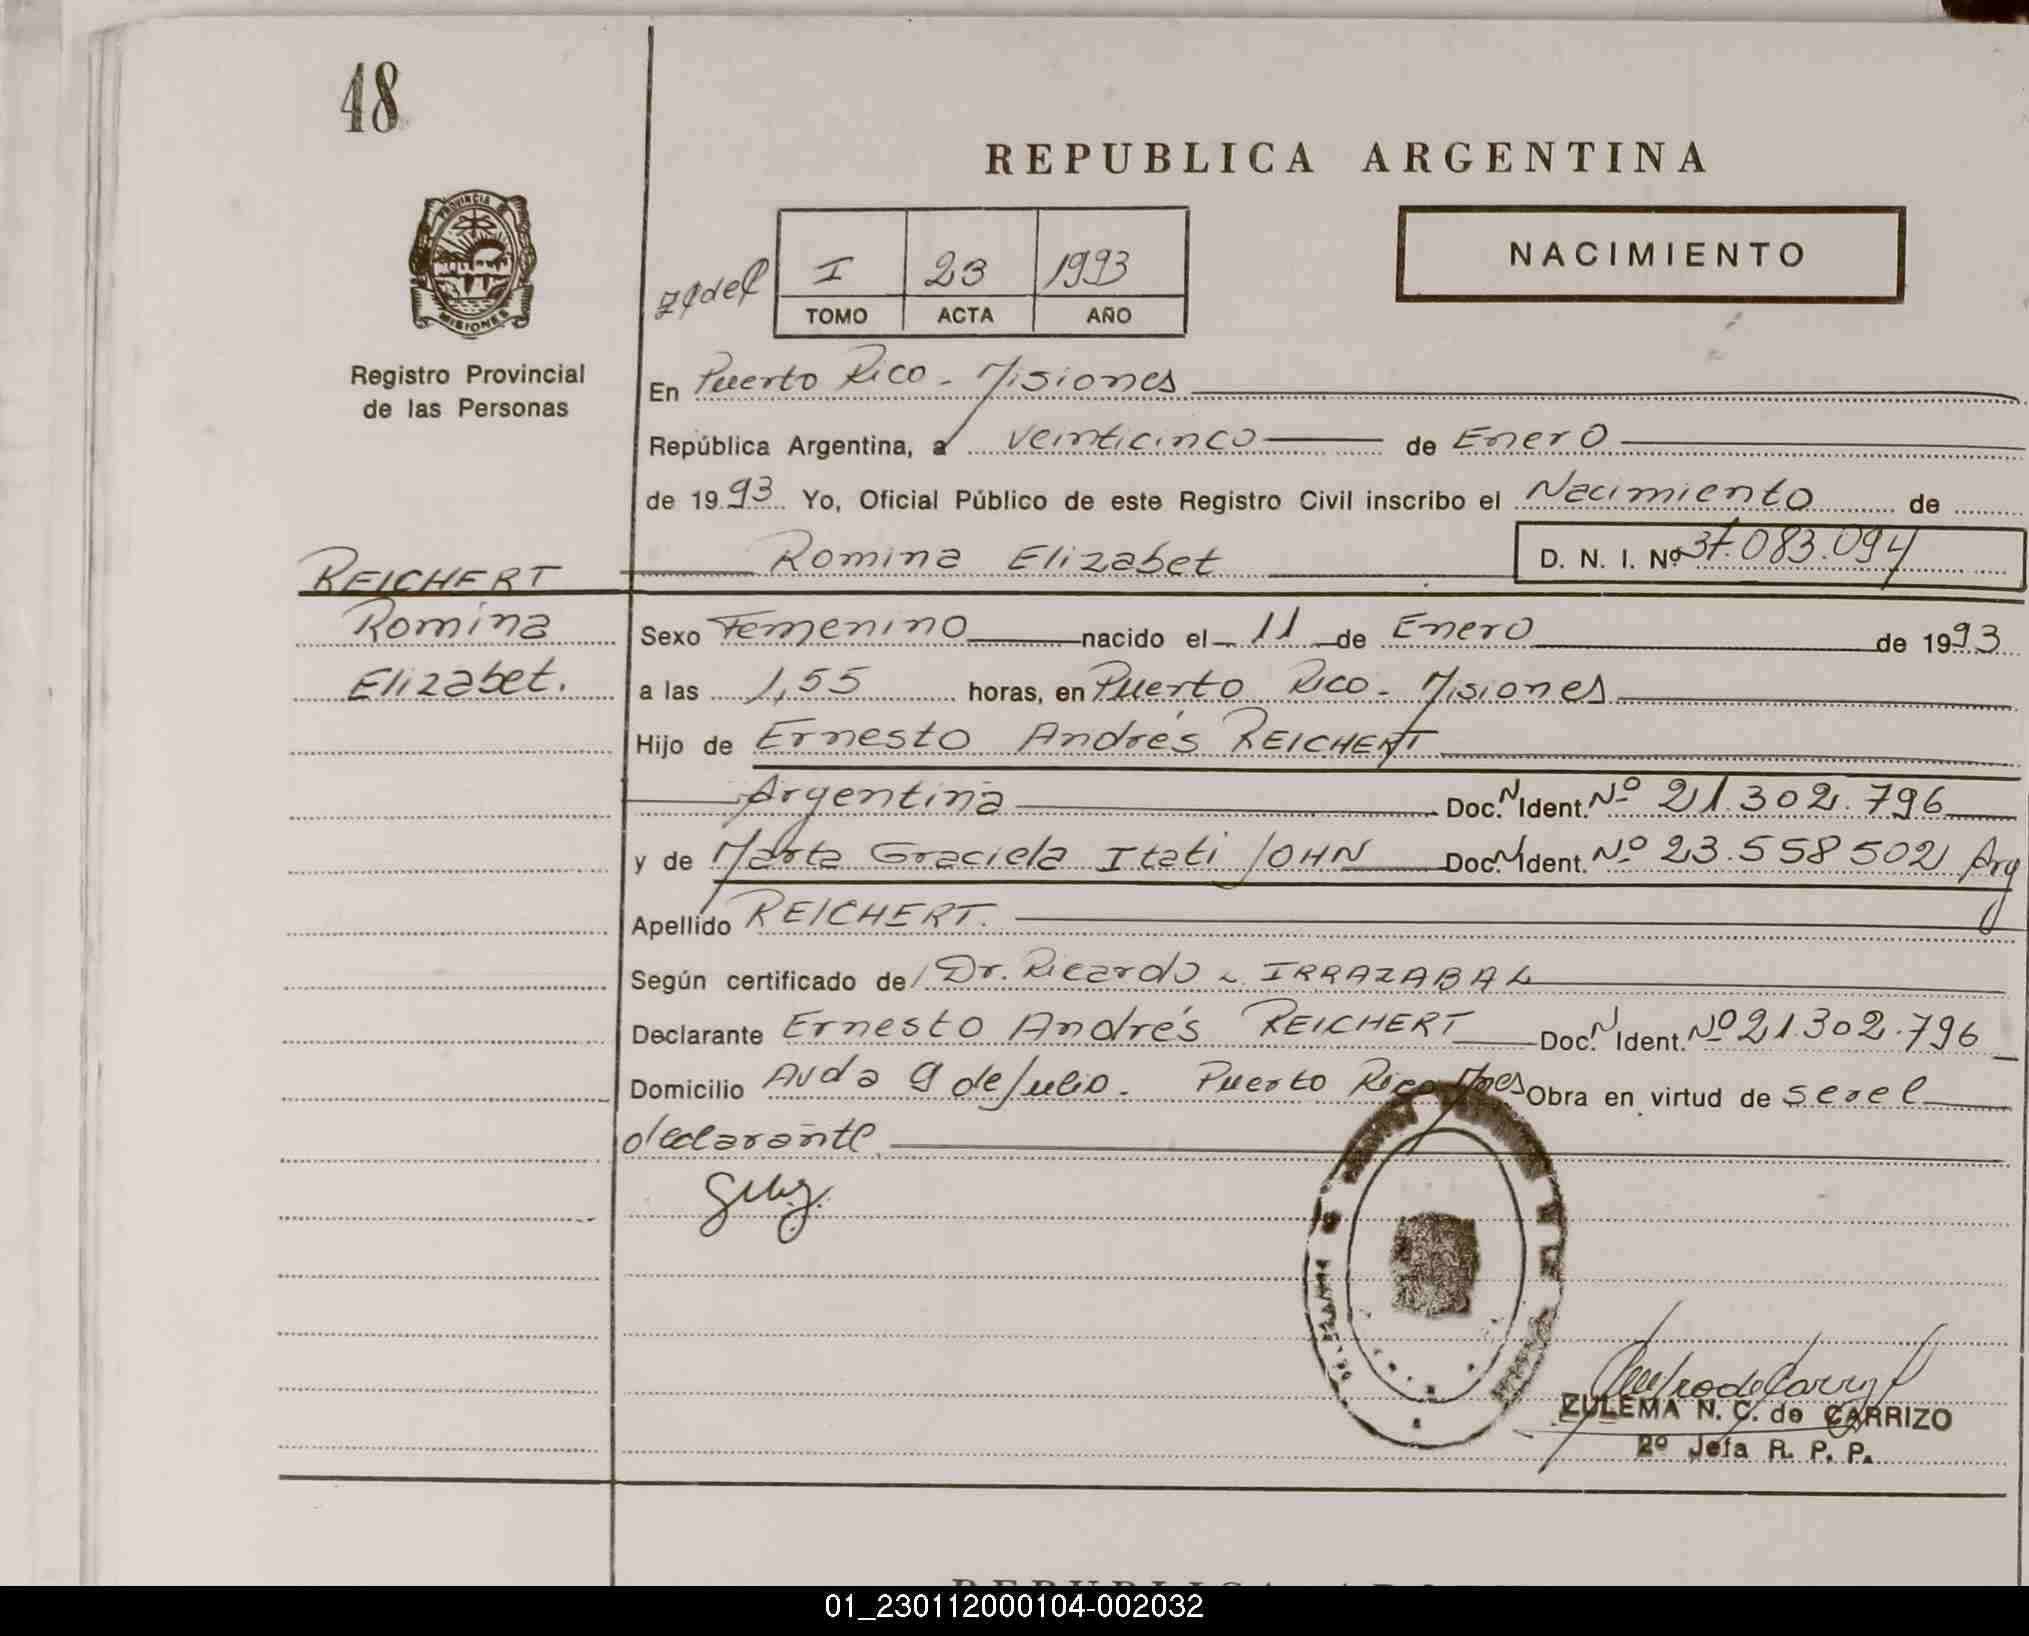 48
REPUBLICA ARGENTINA
PROVINCIA DE
MISIONES
Registro Provincial
de las Personas
I 23 1993
TOMO ACTA AÑO
NACIMIENTO
En Puerto Rico - Misiones
República Argentina, a veinticinco de Enero
de 1993 Yo, Oficial Público de este Registro Civil inscribo el Nacimiento de
REICHERT Romina Elizabet D. N. I. Nº 37.083.094
Romina Sexo Femenino nacido el 11 de Enero de 1993
Elizabet. a las 1,55 horas, en Puerto Rico - Misiones
Hijo de Ernesto Andrés REICHERT
Argentina Doc. N Ident. Nº 21.302.796
y de Marta Graciela Itati JOHN Doc. N Ident. Nº 23.558502 Arg
Apellido REICHERT.
Según certificado de Dr. Ricardo L. IRRAZABAL
Declarante Ernesto Andrés REICHERT Doc. N Ident. Nº 21.302.796
Domicilio Avda 9 de Julio. Puerto Rico Mnes Obra en virtud de ser el
declarante
ZULEMA N. C. de CARRIZO
2º Jefa R. P. P.
01_230112000104-002032